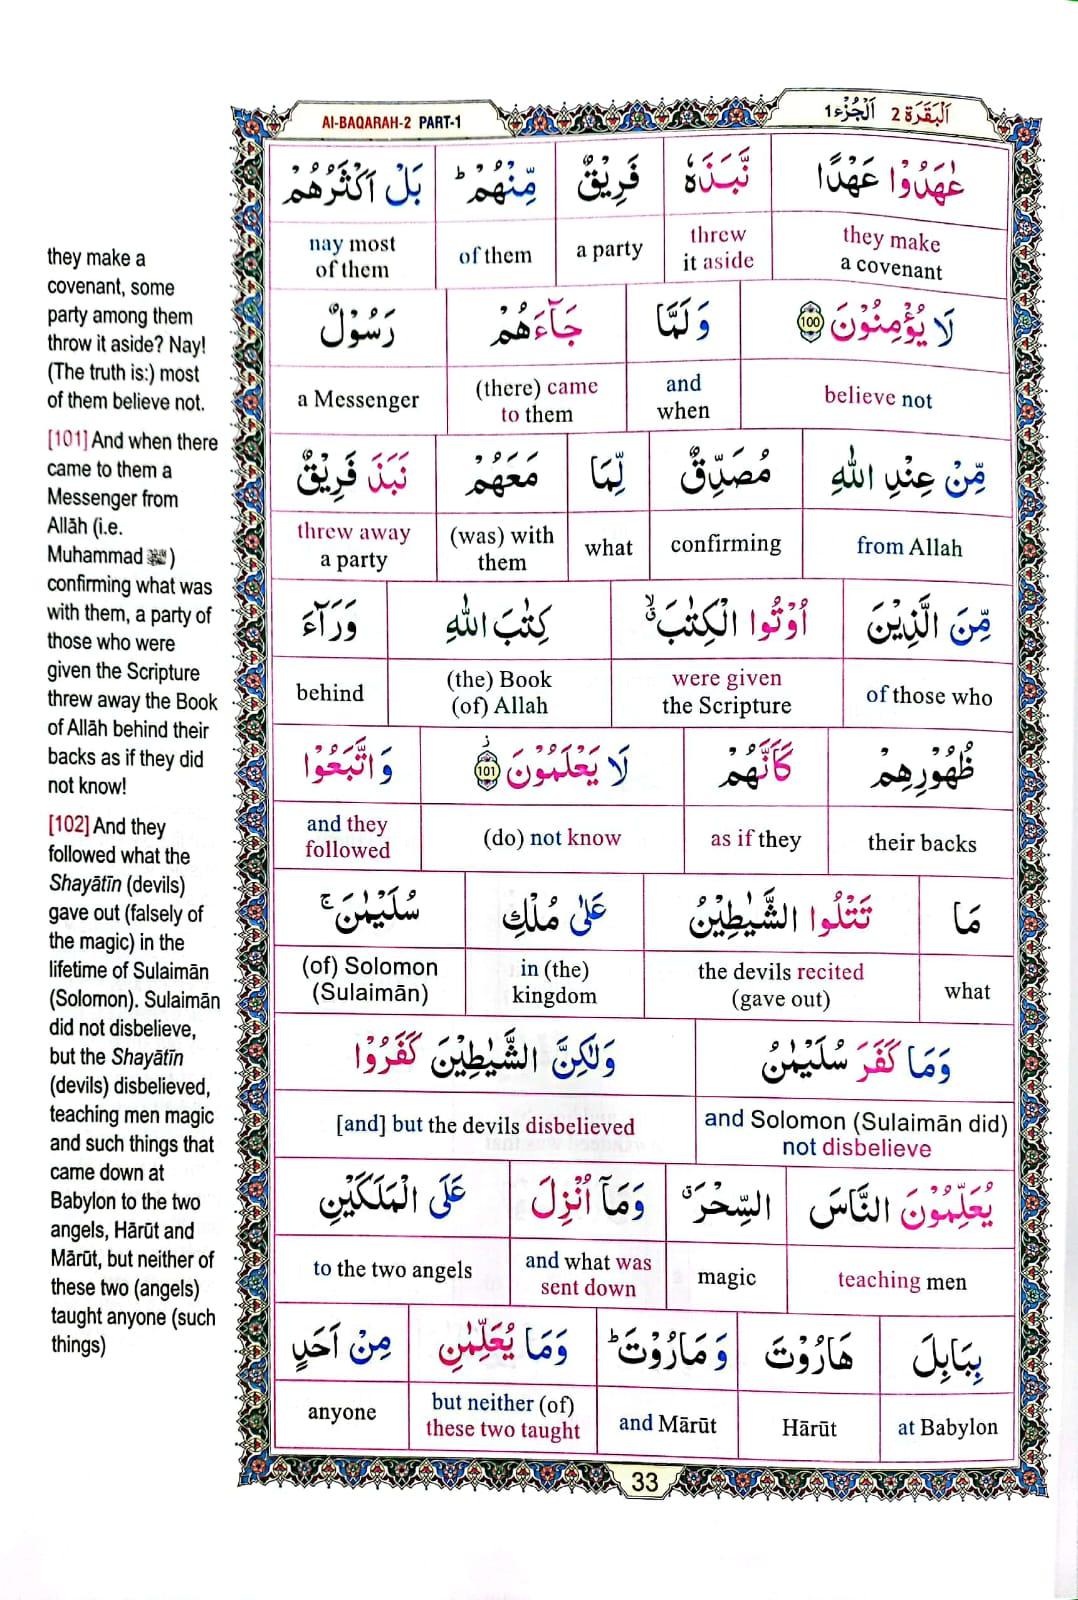 Al-BAQARAH-2 PART-1
اَلْبَقَرَة 2 اَلْجُزْء 1
عٰهَدُوْا عَهْدًا نَّبَذَهٗ فَرِيْقٌ مِّنْهُمْ ؕ بَلْ اَكْثَرُهُمْ
they make a covenant threw it aside a party of them nay most of them
لَا يُؤْمِنُوْنَ 100 وَلَمَّا جَآءَهُمْ رَسُوْلٌ
believe not and when (there) came to them a Messenger
مِّنْ عِنْدِ اللّٰهِ مُصَدِّقٌ لِّمَا مَعَهُمْ نَبَذَ فَرِيْقٌ
from Allah confirming what (was) with them threw away a party
مِّنَ الَّذِيْنَ اُوْتُوا الْكِتٰبَ ۙ كِتٰبَ اللّٰهِ وَرَآءَ
of those who were given the Scripture (the) Book (of) Allah behind
ظُهُوْرِهِمْ كَاَنَّهُمْ لَا يَعْلَمُوْنَ ز 101 وَاتَّبَعُوْا
their backs as if they (do) not know and they followed
مَا تَتْلُوا الشَّيٰطِيْنُ عَلٰى مُلْكِ سُلَيْمٰنَ ۚ
what the devils recited (gave out) in (the) kingdom (of) Solomon (Sulaimān)
وَمَا كَفَرَ سُلَيْمٰنُ وَلٰكِنَّ الشَّيٰطِيْنَ كَفَرُوْا
and Solomon (Sulaimān did) not disbelieve [and] but the devils disbelieved
يُعَلِّمُوْنَ النَّاسَ السِّحْرَ ۗ وَمَآ اُنْزِلَ عَلَى الْمَلَكَيْنِ
teaching men magic and what was sent down to the two angels
بِبَابِلَ هَارُوْتَ وَمَارُوْتَ ؕ وَمَا يُعَلِّمٰنِ مِنْ اَحَدٍ
at Babylon Hārūt and Mārūt but neither (of) these two taught anyone
33
they make a
covenant, some
party among them
throw it aside? Nay!
(The truth is:) most
of them believe not.
[101] And when there
came to them a
Messenger from
Allāh (i.e.
Muhammad ﷺ)
confirming what was
with them, a party of
those who were
given the Scripture
threw away the Book
of Allāh behind their
backs as if they did
not know!
[102] And they
followed what the
Shayātīn (devils)
gave out (falsely of
the magic) in the
lifetime of Sulaimān
(Solomon). Sulaimān
did not disbelieve,
but the Shayātīn
(devils) disbelieved,
teaching men magic
and such things that
came down at
Babylon to the two
angels, Hārūt and
Mārūt, but neither of
these two (angels)
taught anyone (such
things)